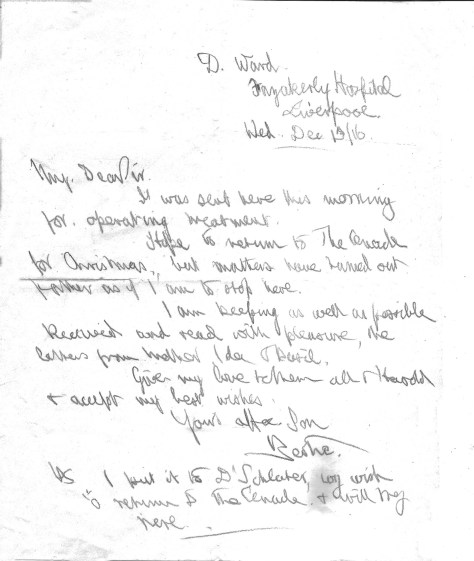 D. Ward.
Fazakerly Hospital
Liverpool.
Wed. Dec 13/16
My. Dear Sir.
I was sent here this morning
for. operating treatment.
Hope to return to The Cenacle
for Christmas, but matters have turned out
rather as if I am to stop here.
I am keeping as well as possible
Received and read with pleasure, the
letters from Mother Ida & Basil.
Give my love to them all & Harold
& accept my best wishes.
Your affec Son
PS I put it to Dr Schlater, my wish
to return to The Cenacle & will
here.